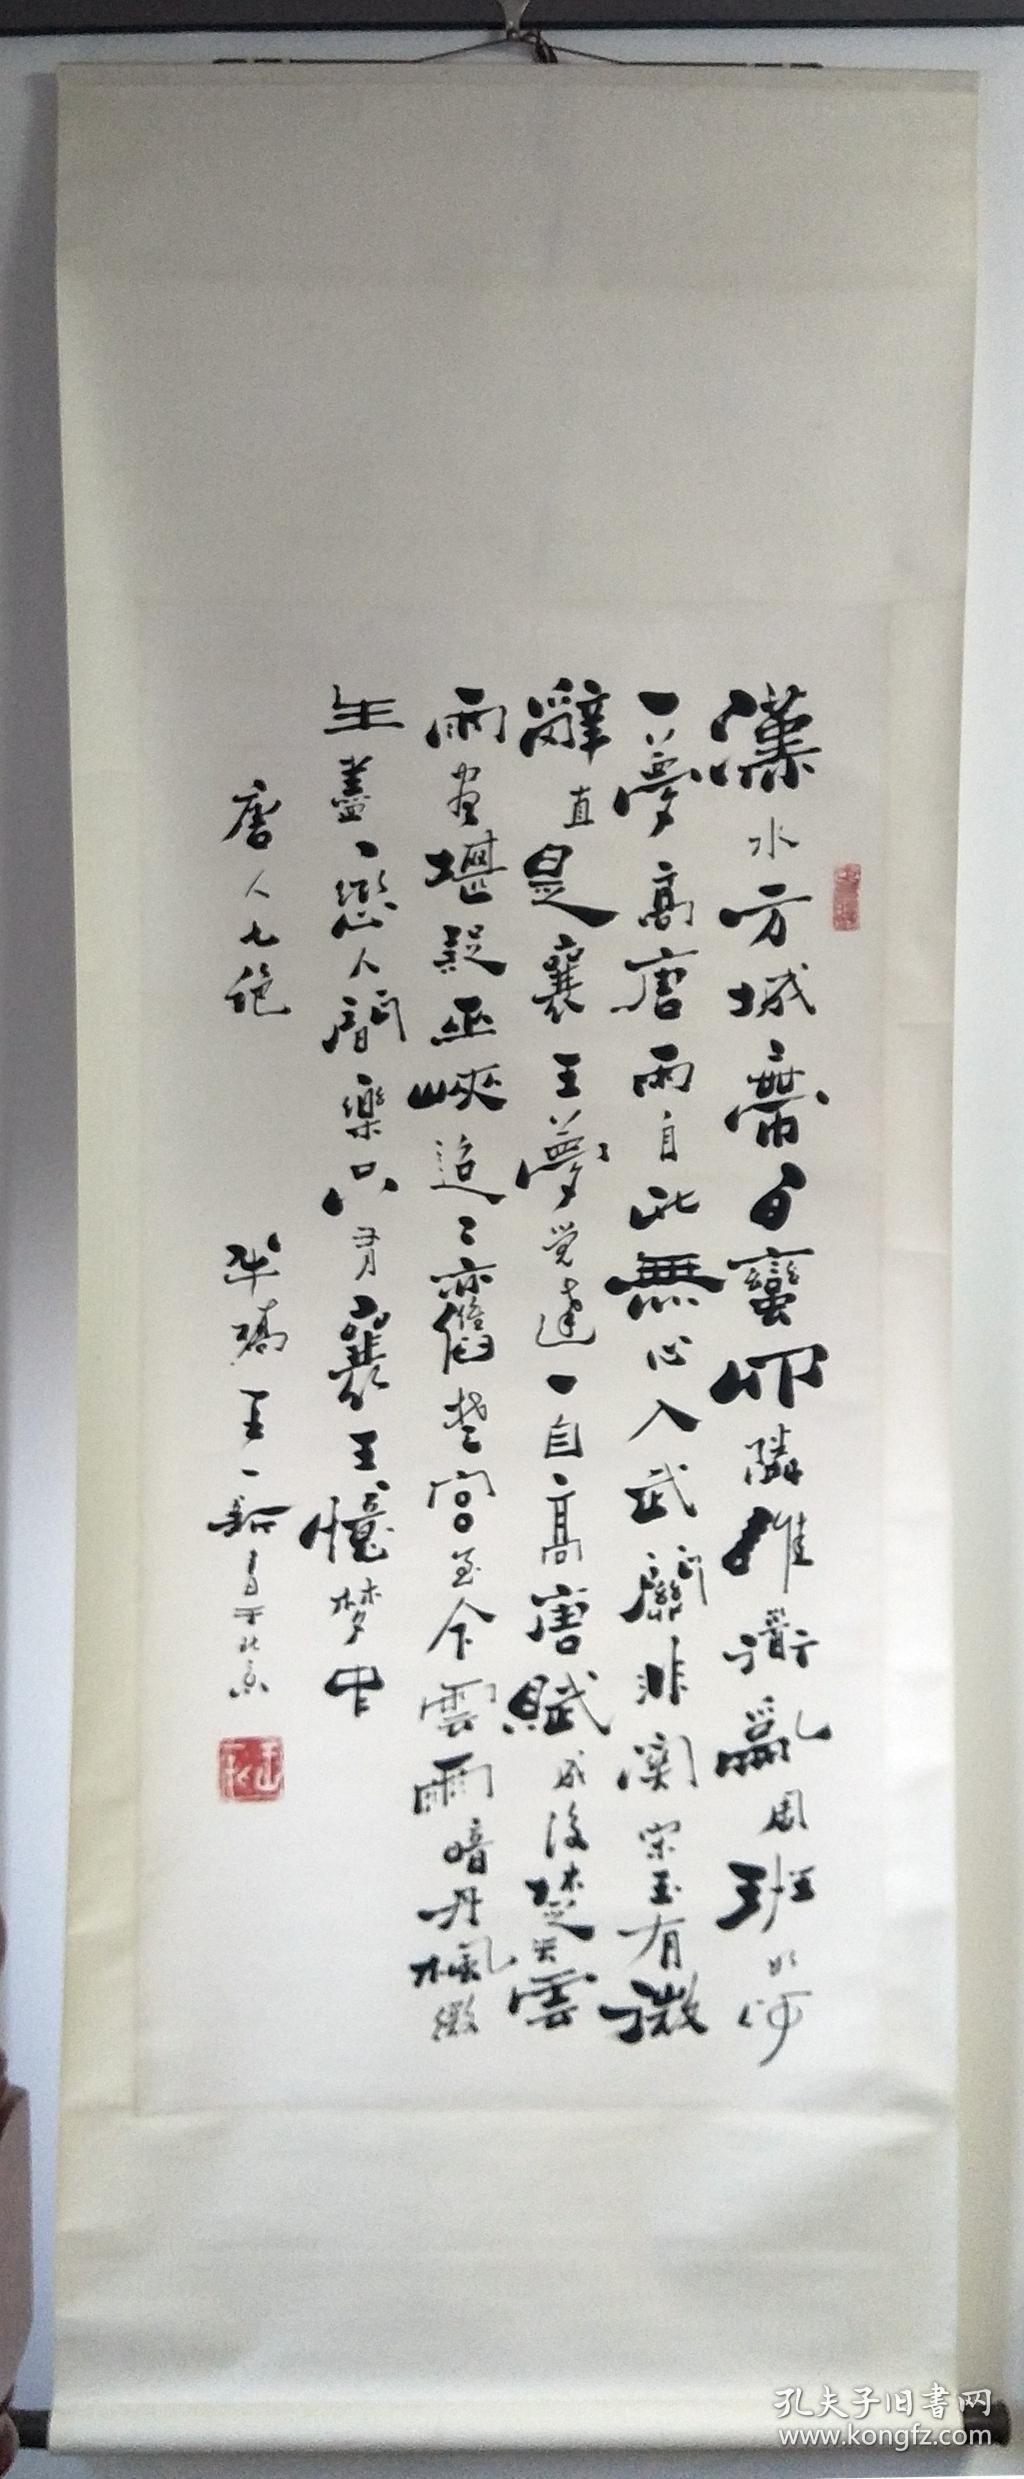 漢水方城帶百蠻四隣誰道亂周班如何
一夢高唐雨自此無心入武關非關宋玉有微
辭直是襄王夢覺遲一自高唐賦成後楚天雲
雨盡堪疑巫峽迢〻舊楚宮至今雲雨暗丹楓微
生盡戀人間樂只有襄王憶梦中
唐人七絕
王一新書于北京
孔夫子旧書网
www.kongfz.com